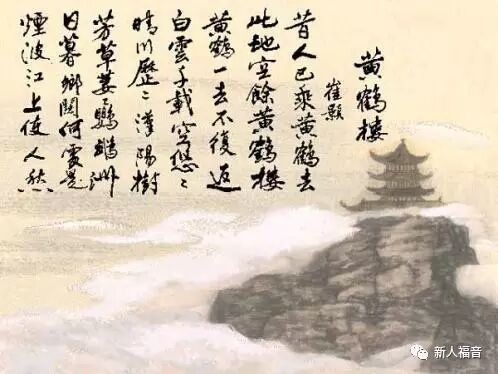 黄鹤楼
崔顥
昔人已乘黄鶴去
此地空餘黄鶴楼
黄鶴一去不復返
白雲千載空悠〻
晴川歷〻漢陽樹
芳草萋〻鸚鵡洲
日暮鄉関何處是
煙波江上使人愁
新人福音